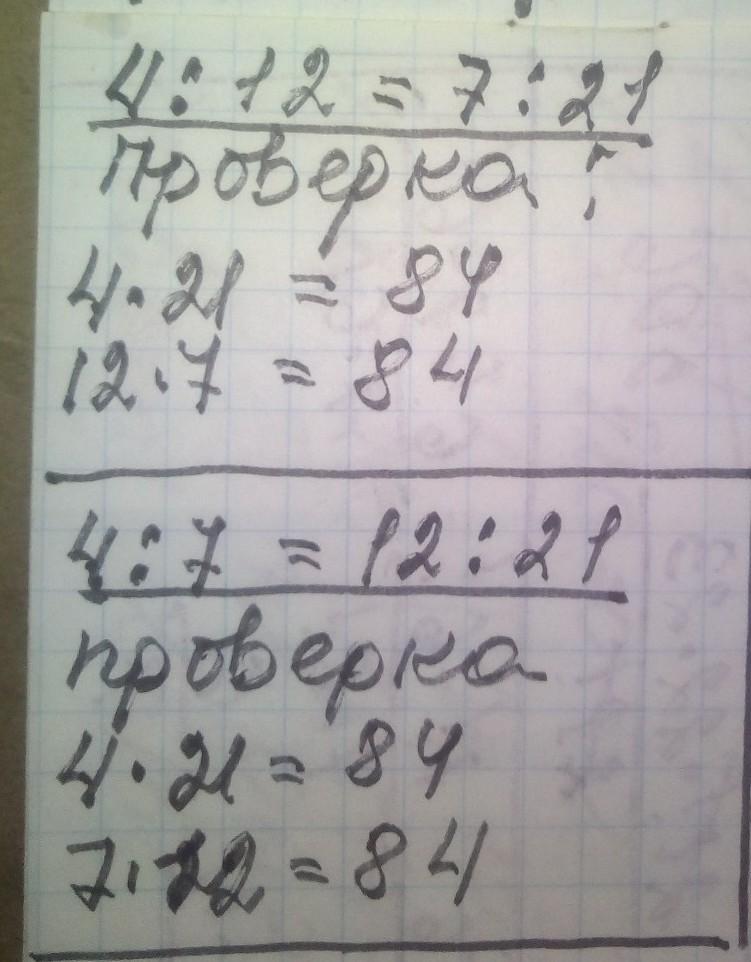 4 : 12 = 7 : 21
проверка :
4 · 21 = 84
12 · 7 = 84
4 : 7 = 12 : 21
проверка
4 · 21 = 84
7 · 12 = 84